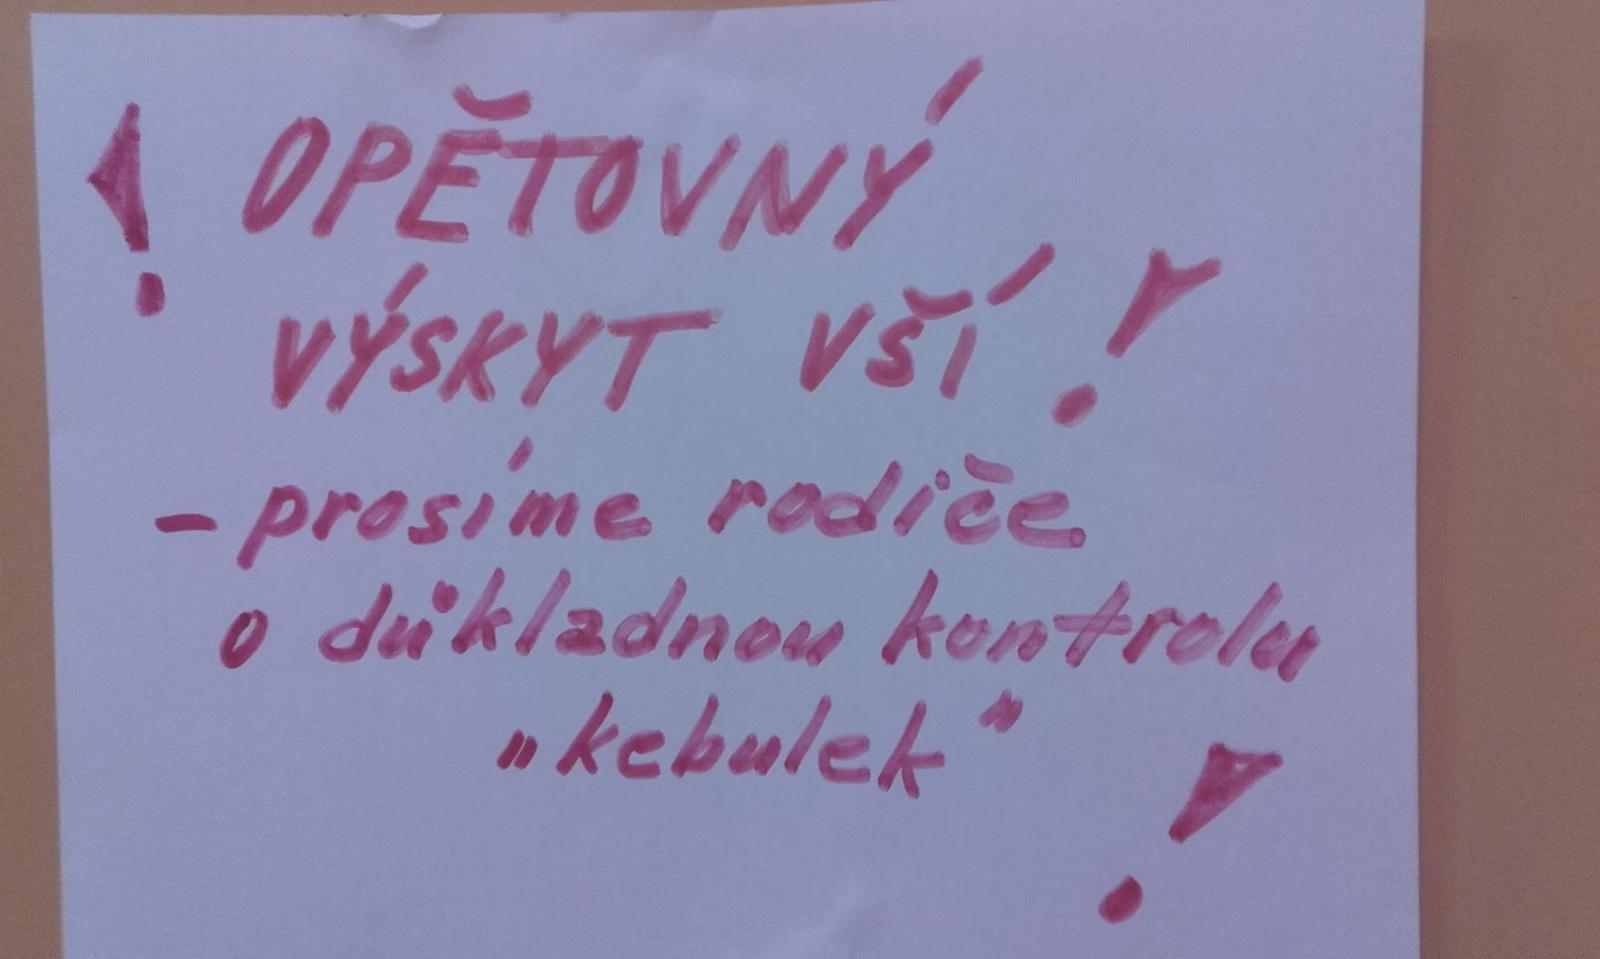 ! OPĚTOVNÝ
VÝSKYT VŠÍ !
- prosíme rodiče
o důkladnou kontrolu
„kebulek" !